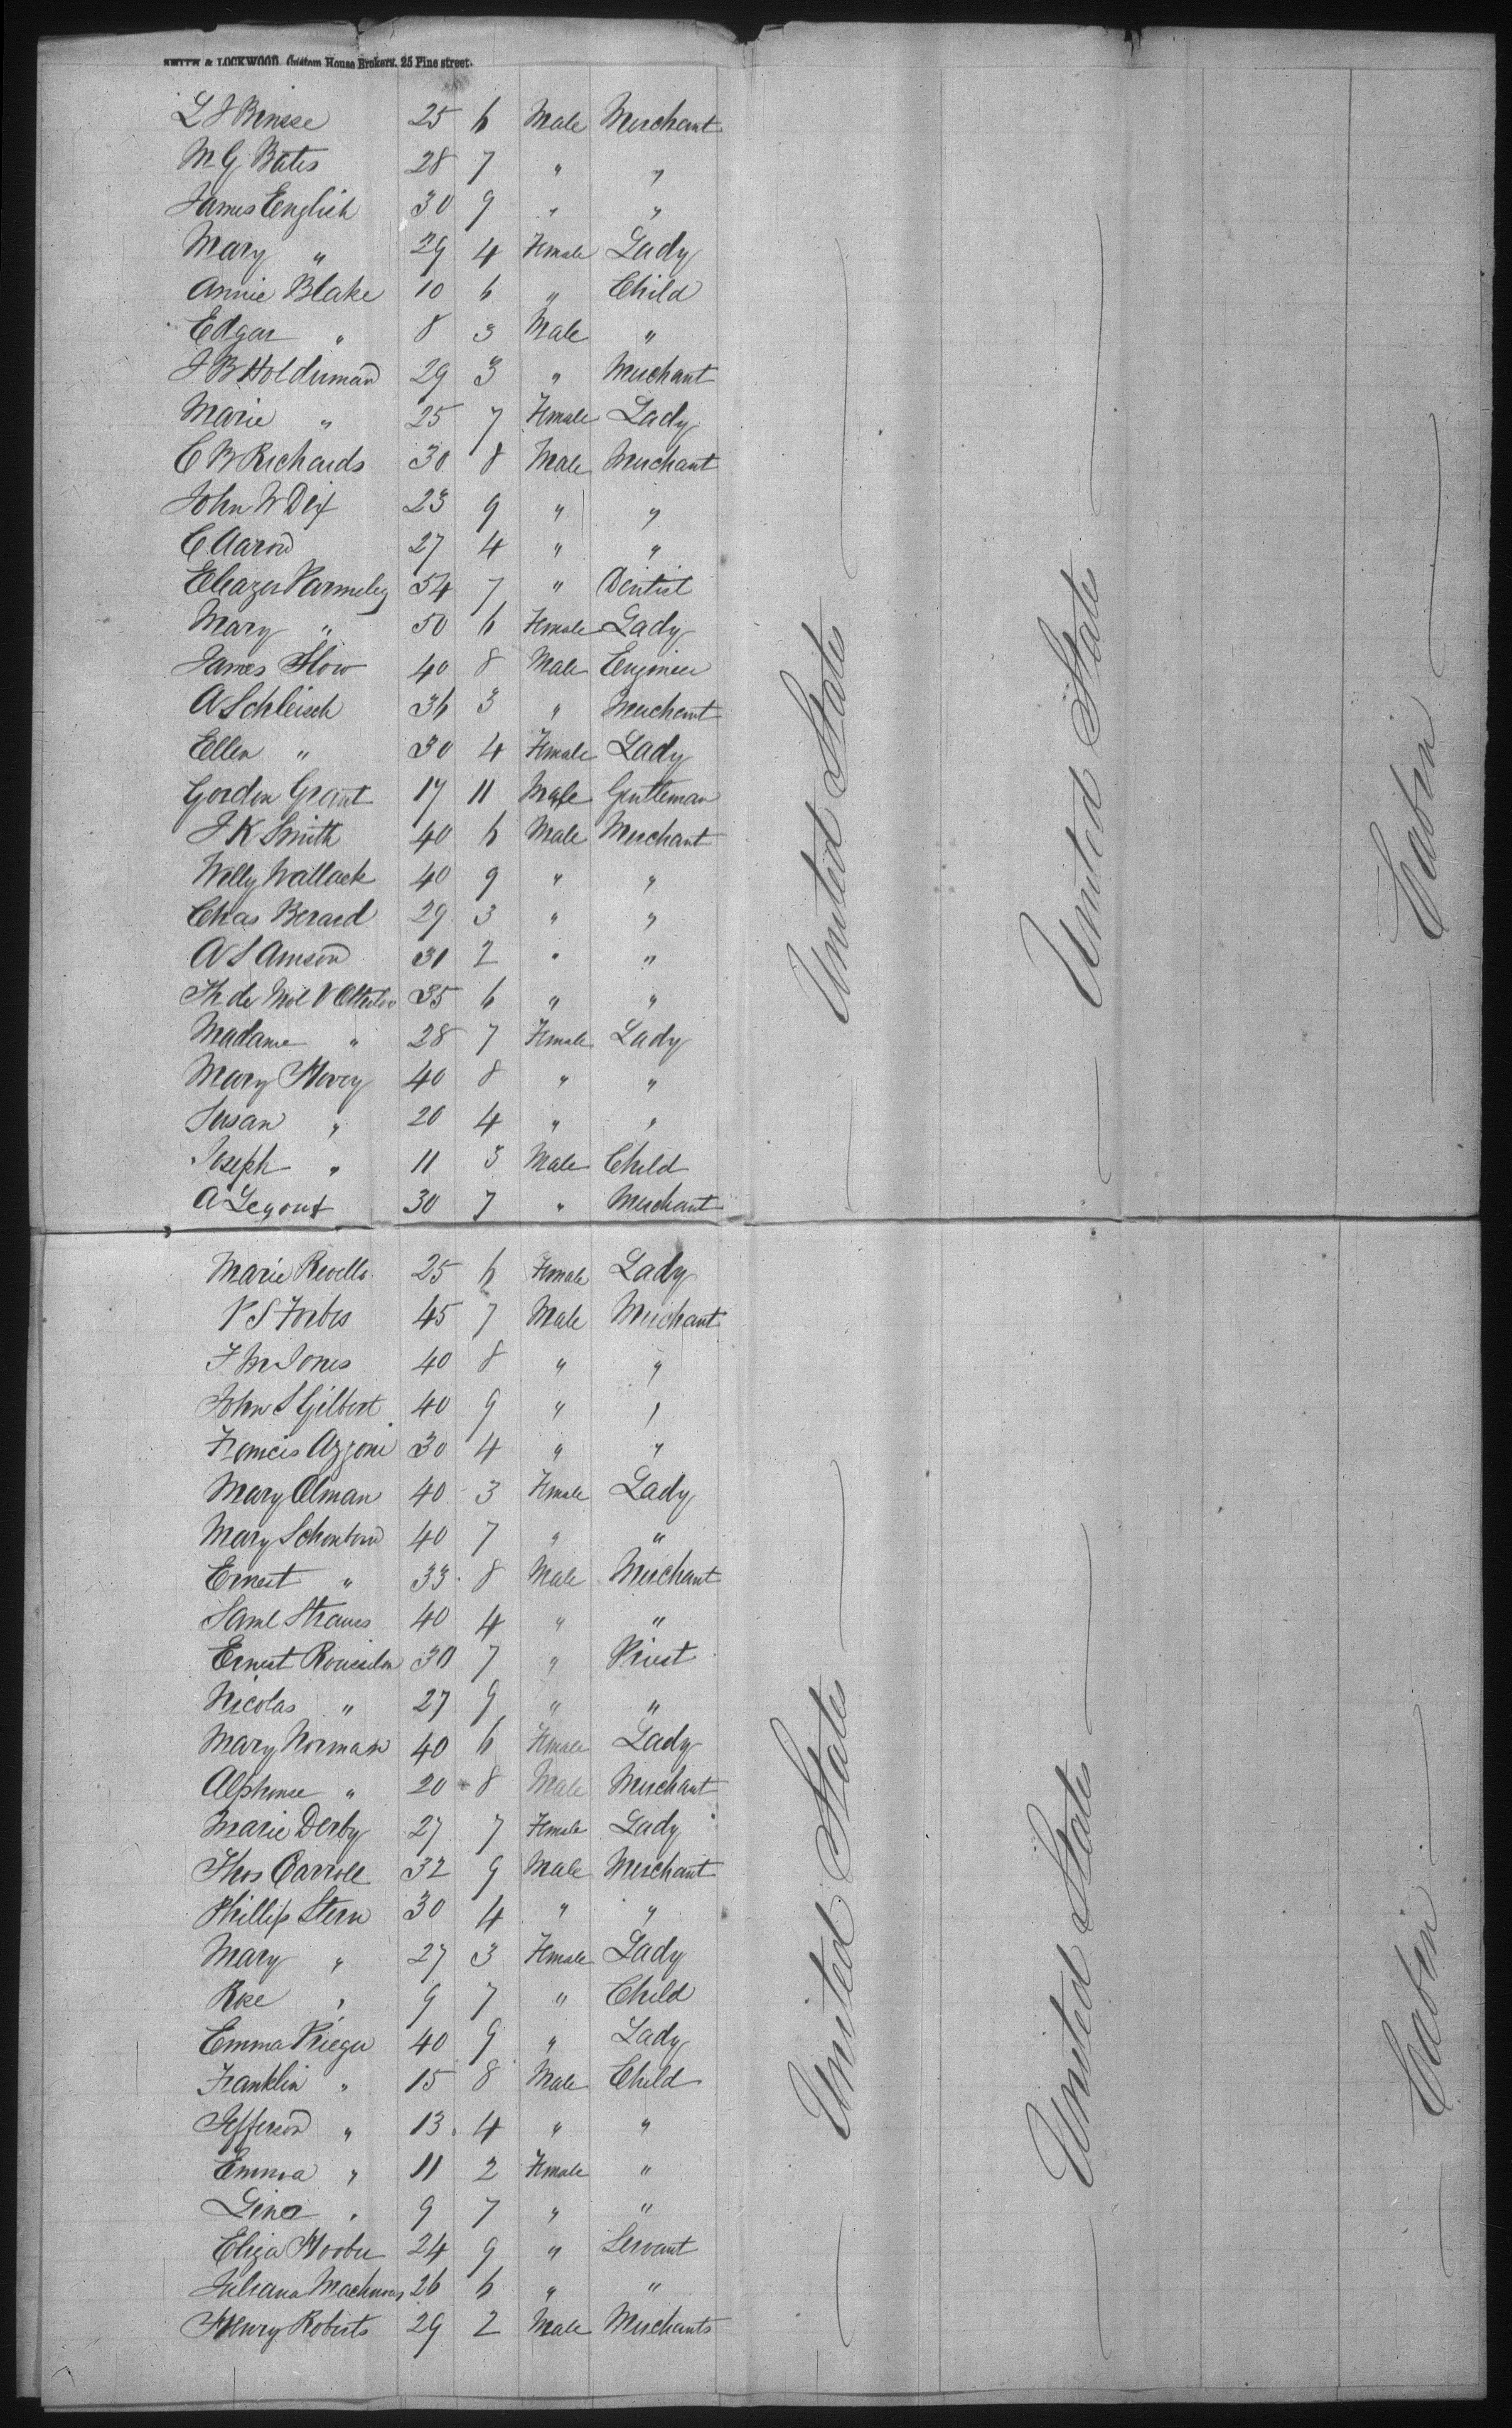 SMITH & LOCKWOOD, Custom House Brokers, 25 Pine street.
L J Binsse 25 6 Male Merchant
M G Bates 28 7 " "
James English 30 9 " "
Mary " 29 4 Female Lady
Annie Blake 10 6 " Child
Edgar " 8 3 Male "
J B Holderman 29 3 " Merchant
Marie " 25 7 Female Lady
C B Richards 30 8 Male Merchant
John W Dix 23 9 " "
C Aaron 27 4 " "
Eleazer Parmeley 54 7 " Dentist
Mary " 50 6 Female Lady
James How 40 8 Male Engineer
A Schleisch 36 3 " Merchant
Ellen " 30 4 Female Lady
Gordon Grant 17 11 Male Gentleman
J K Smith 40 6 Male Merchant
Willy Wallack 40 9 " "
Chas Berard 29 3 " "
A S Amson 31 2 " "
Th de 35 6 " "
Madame " 28 7 Female Lady
Mary Hovey 40 8 " "
Susan " 20 4 " "
Joseph " 11 3 Male Child
A Legout 30 7 " Merchant
Marie Revello 25 6 Female Lady
P S Forbes 45 7 Male Merchant
F M Jones 40 8 " "
John S Gilbert 40 9 " "
Francis Azzoni 30 4 " "
Mary Olman 40 3 Female Lady
Mary 40 7 " "
Ernest " 33 8 Male Merchant
Saml Straus 40 4 " "
Ernest 30 7 " Priest
Nicolas " 27 9 " "
Mary Norman 40 6 Female Lady
Alphonse " 20 8 Male Merchant
Marie Derby 27 7 Female Lady
Thos Carroll 32 9 Male Merchant
Phillip Stern 30 4 " "
Mary " 27 3 Female Lady
Rose " 9 7 " Child
Emma Krieger 40 9 " Lady
Franklin " 15 8 Male Child
Jefferson " 13 4 " "
Emma " 11 2 Female "
Lina " 9 7 " "
Eliza Hoober 24 9 " Servant
Juliana 26 6 " "
Henry Roberts 29 2 Male Merchants
United States
United States
Cabin
United States
United States
Cabin